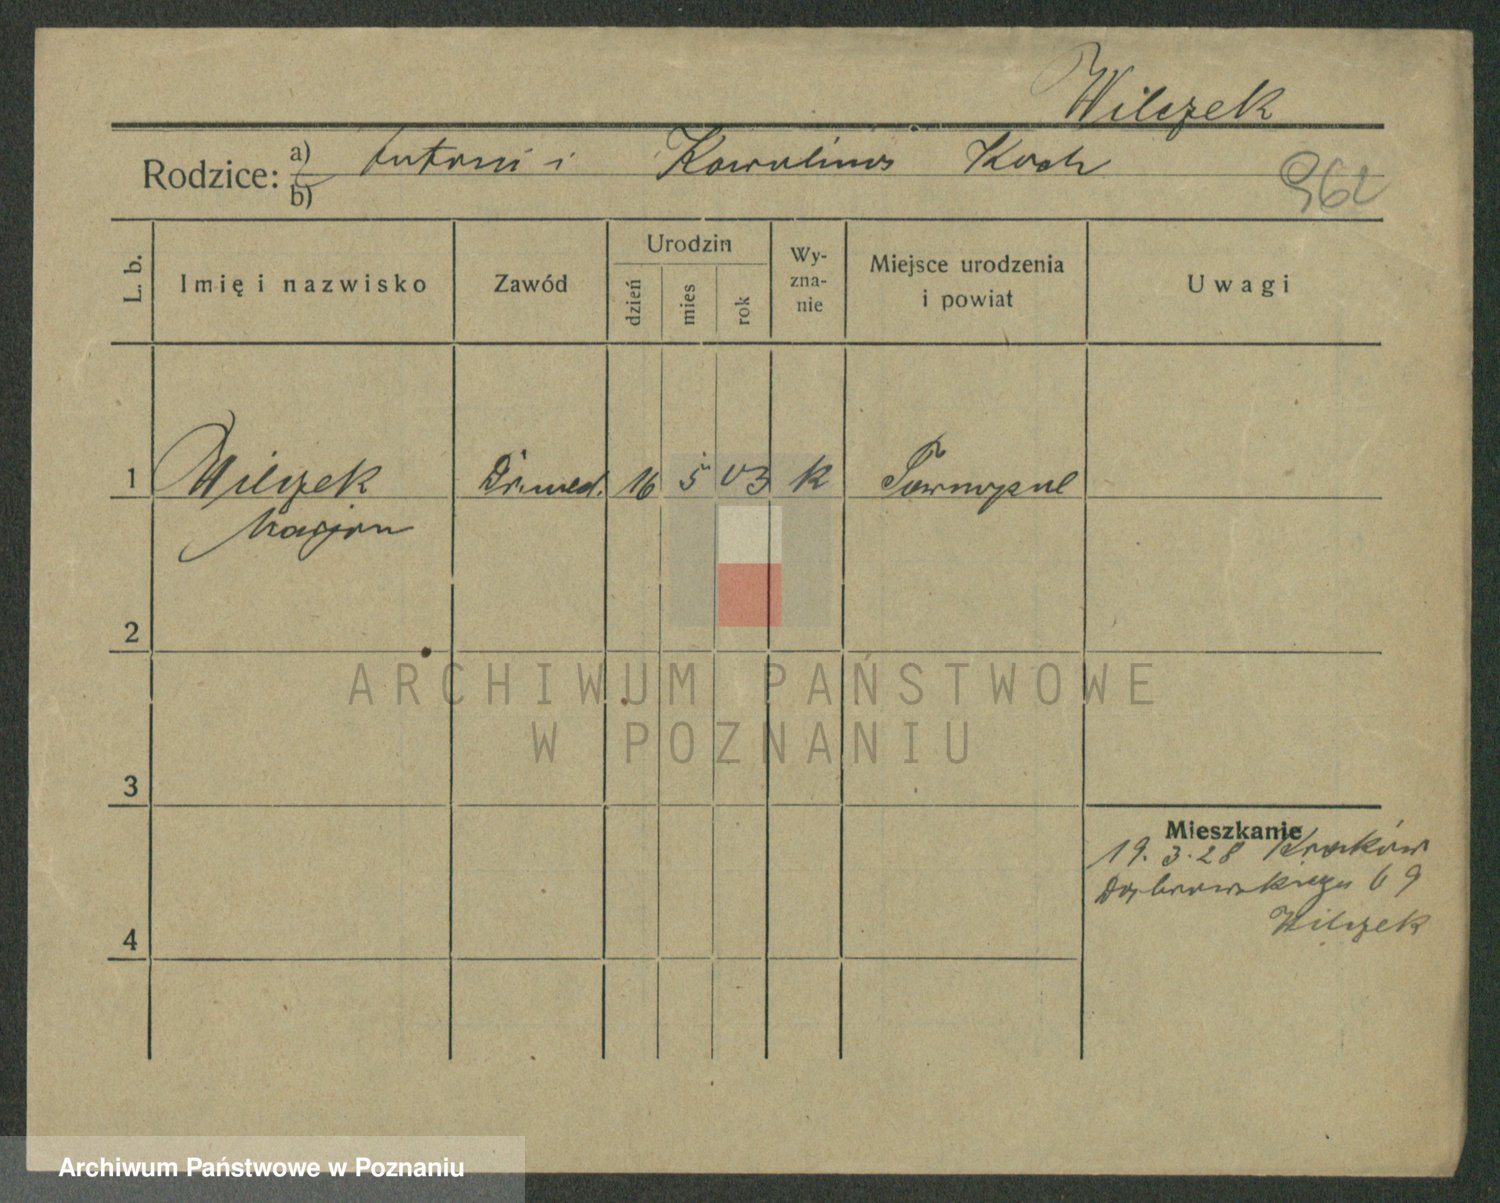 Wilczek
Rodzice: a) Antoni i Karolina Koch
b)
962
L. b.
Imię i nazwisko
Zawód
Urodzin
dzień
mies
rok
Wy-
zna-
nie
Miejsce urodzenia
i powiat
Uwagi
1 Wilczek Dr. med. 16 5 03 k Tarnopol
Marjan
2
ARCHIWUM PAŃSTWOWE
W POZNANIU
3
Mieszkanie
19. 3. 28 Kraków
Dąbrowskiego 69
Wilczek
4
Archiwum Państwowe w Poznaniu